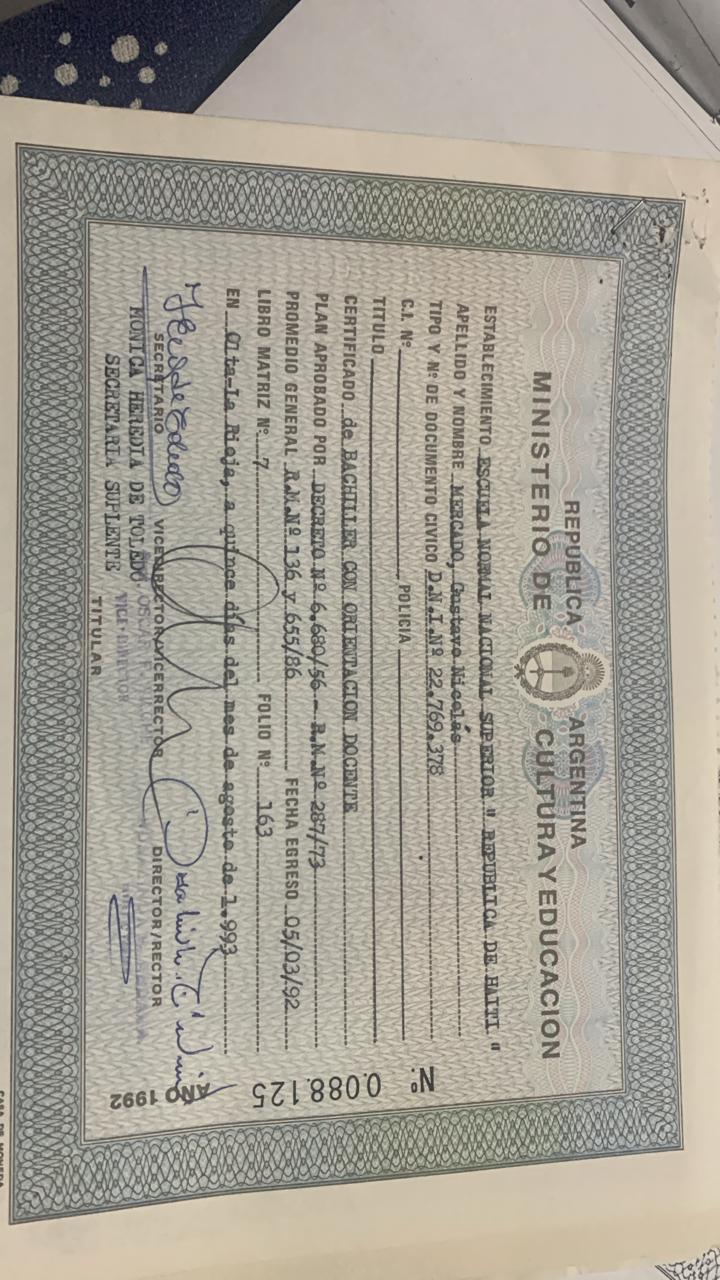 REPUBLICA ARGENTINA
MINISTERIO DE CULTURA Y EDUCACION
ESTABLECIMIENTO ESCUELA NORMAL NACIONAL SUPERIOR " REPUBLICA DE HAITI "
APELLIDO Y NOMBRE MERCADO, Gustavo Nicolás
TIPO Y Nº DE DOCUMENTO CIVICO D.N.I.Nº 22.769.378
C.I. Nº , POLICIA
TITULO
CERTIFICADO de BACHILLER CON ORIENTACION DOCENTE
PLAN APROBADO POR DECRETO Nº 6.680/56 - R.M.Nº 287/73
PROMEDIO GENERAL R.M.Nº 136 y 655/86 FECHA EGRESO 05/03/92
LIBRO MATRIZ Nº 7 FOLIO Nº 163
EN Olta-La Rioja, a quince días del mes de agosto de 1.993
SECRETARIO VICEDIRECTOR/VICERRECTOR DIRECTOR/RECTOR
MONICA HEREDIA DE TOLEDO
SECRETARIA SUPLENTE
VICE-DIRECTOR
TITULAR
Nº. 0.088.125
AÑO 1992
CASA DE MONEDA